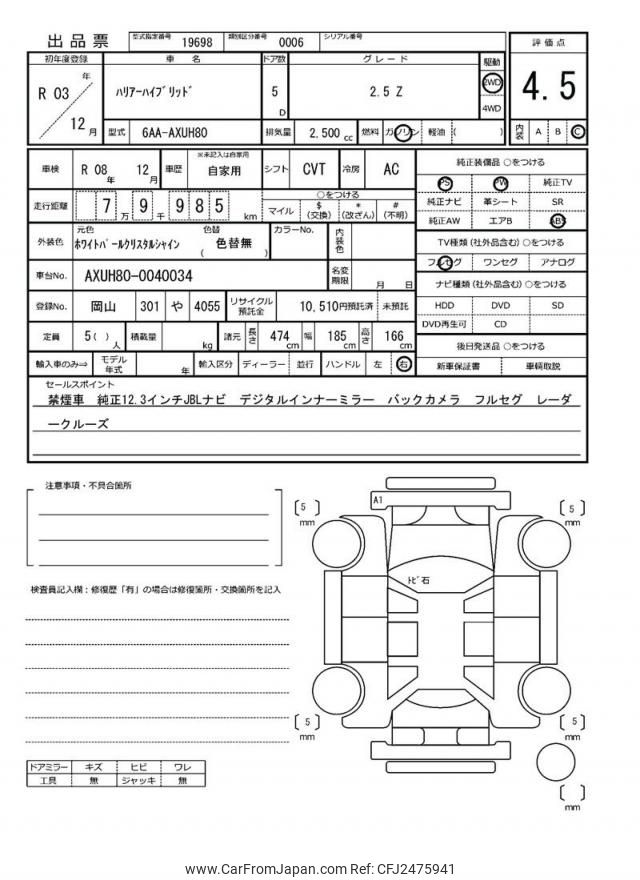 出品票 型式指定番号 19698 類別区分番号 0006 シリアル番号
初年度登録 車名 ドア数 グレード 駆動 評価点
R 03 年 12 月 ﾊﾘｱｰﾊｲﾌﾞﾘｯﾄﾞ 5 D 2.5 Z 2WD 4WD 4.5
型式 6AA-AXUH80 排気量 2,500 cc 燃料 ガソリン 軽油 ( ) 内装 A B C
車検 R 08 年 12 月 車歴 ※未記入は自家用 自家用 シフト CVT 冷房 AC
純正装備品 ○をつける
PS PW 純正TV
純正ナビ 革シート SR
純正AW エアB ABS
走行距離 7 万 9 千 9 8 5 km ○をつける マイル $ (交換) * (改ざん) # (不明)
外装色 元色 ﾎﾜｲﾄﾊﾟｰﾙｸﾘｽﾀﾙｼｬｲﾝ 色替 ( 色替無 ) カラーNo. 内装色
TV種類 (社外品含む) ○をつける
フルセグ ワンセグ アナログ
車台No. AXUH80-0040034 名変期限 月 日
ナビ種類 (社外品含む) ○をつける
HDD DVD SD
DVD再生可 CD
登録No. 岡山 301 や 4055 リサイクル預託金 10,510円預託済 未預託
定員 5 ( ) 人 積載量 kg 諸元 長さ 474 cm 幅 185 cm 高さ 166 cm
後日発送品 ○をつける
新車保証書 車輌取説
輸入車のみ⇒ モデル年式 年 輸入区分 ディーラー 並行 ハンドル 左 右
セールスポイント
禁煙車 純正12.3インチJBLナビ デジタルインナーミラー バックカメラ フルセグ レーダ
ークルーズ
注意事項・不具合箇所
検査員記入欄：修復歴「有」の場合は修復箇所・交換箇所を記入
A1
5 mm
5 mm
ﾄﾋﾞ石
5 mm
5 mm
mm
ドアミラー キズ ヒビ ワレ
工具 無 ジャッキ 無
www.CarFromJapan.com Ref: CFJ2475941